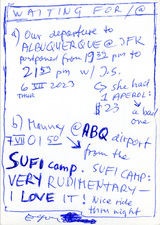 WAITING FOR/@
a) Our departure to
ALBUQUERQUE @ JFK
postponed from 19:32 pm to
21:53 pm w/ J.S.
6 VII 2023
THUR
↳ she had
1 APEROL:
$23 → a bad
one
b) Mounry @ ABQ airport
7 VII 01:50 ↳ from the
SUFI camp. SUFI CAMP:
VERY RUDIMENTARY —
I LOVE IT! Nice ride
thru night